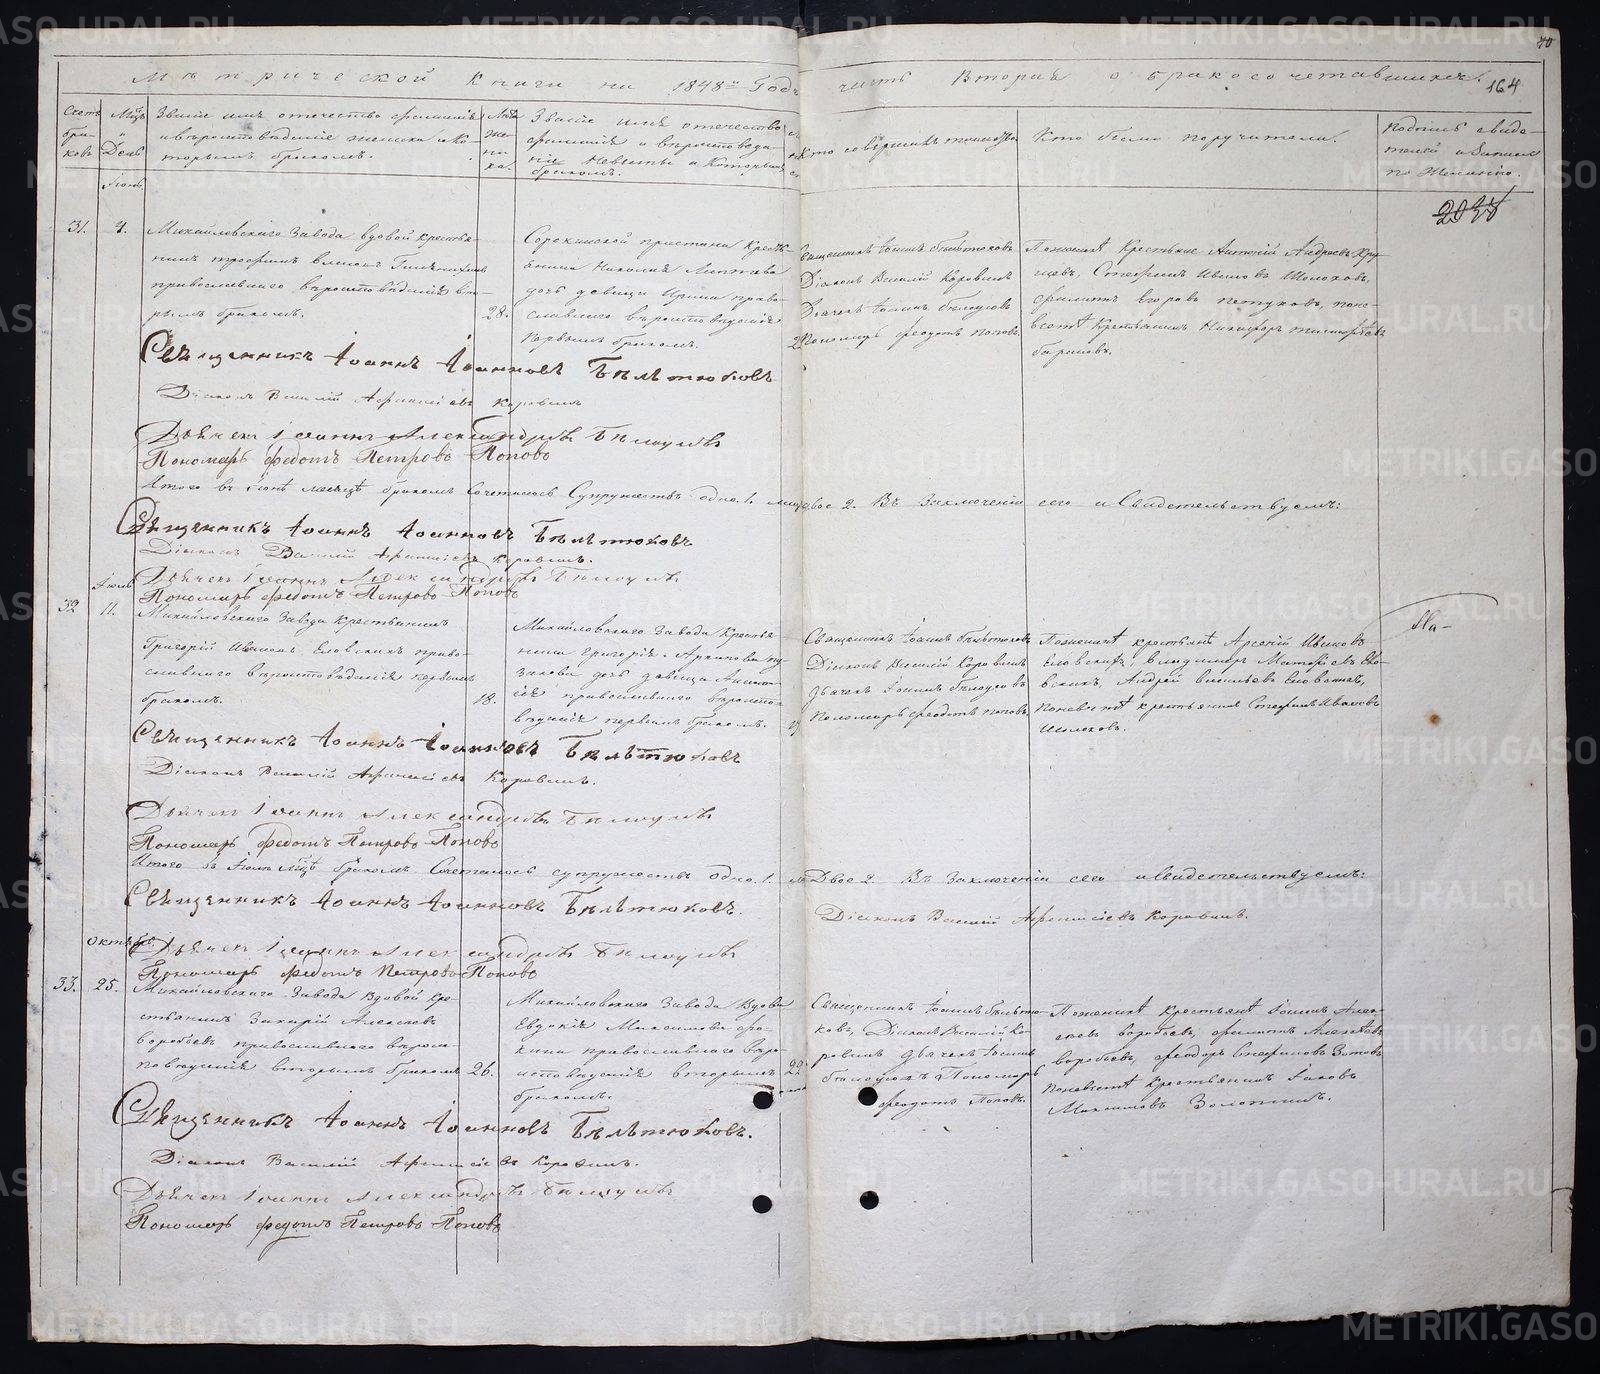 Метрической Книги на 1848й Годъ часть Вторая о бракосочетавшихся.
164
Счетъ браковъ
Мсцъ и День
Званіе имя отечество фамилія и вѣроисповѣданіе жениха и Которымъ бракомъ.
Лѣта жениха.
Званіе имя отечество фамилія и вѣроисповѣданіе Невесты и Которымъ бракомъ.
Кто совершалъ таинство
Кто были поручители.
Подпись свидетелей записи по Желанію.
31. 4.
Михайловскаго Завода вдовой крестья-
нинъ Трофимъ
православнаго вѣроисповѣданія вто-
рымъ бракомъ.
28.
Сорокинской пристани Кресть-
янина Николая Лаптева
дочь девица Ирина право-
славнаго вѣроисповѣданія
первымъ бракомъ.
Священникъ Іоаннъ Бѣлѣтюковъ
Діаконъ Василій Коровинъ
Дьячекъ Іоаннъ Бѣлоусовъ
Пономарь Федотъ Поповъ
По женихѣ Крестьяне Антоній Андреевъ Кру-
Стефанъ Ивановъ Шолоховъ,
Филиппъ Егоровъ Петуховъ, по не-
вестѣ Крестьянинъ Никифоръ Тимофѣевъ
Бариновъ.
Священникъ Іоаннъ Іоанновъ Бѣлѣтюковъ
Діаконъ Василій Афанасіевъ Коровинъ
Дьячекъ Іоаннъ Александровъ Бѣлоусовъ
Пономарь Федотъ Петровъ Поповъ
Итого въ Іюнѣ месяцѣ бракомъ Сочеталось Супружествъ одно. 1. лицъ двое 2. Въ Заключеніи сего и Свидетельствуемъ:
Священникъ Іоаннъ Іоанновъ Бѣлѣтюковъ
Діаконъ Василій Афанасіевъ Коровинъ.
Дьячекъ Іоаннъ Александровъ Бѣлоусовъ
Пономарь Федотъ Петровъ Поповъ
Іюль
32 11.
Михайловскаго Завода Крестьянинъ
Григорій Ивановъ Еловскихъ право-
славнаго вѣроисповѣданія первымъ
бракомъ.
18.
Михайловскаго Завода Крестья-
нина Григорія Архипова Пу-
зикова дочь девица
православнаго вѣроиспо-
вѣданія первымъ бракомъ.
Священникъ Іоаннъ Бѣлѣтюковъ
Діаконъ Василій Коровинъ
Дьячекъ Іоаннъ Бѣлоусовъ
Пономарь Федотъ Поповъ
По женихѣ крестьянѣ Арсеній Ивановъ
Еловскихъ, Владимиръ Матфѣевъ Ело-
вскихъ, Андрей Васильевъ Еловскихъ,
По невестѣ крестьянинъ Стефанъ Ивановъ
Шолоховъ.
Священникъ Іоаннъ Іоанновъ Бѣлѣтюковъ
Діаконъ Василій Афанасіевъ Коровинъ.
Дьячекъ Іоаннъ Александровъ Бѣлоусовъ
Пономарь Федотъ Петровъ Поповъ
Итого въ Іюлѣ Мсцѣ бракомъ Сочеталось супружествъ одно. 1. Двое 2. Въ Заключеніи сего и Свидетельствуемъ:
Священникъ Іоаннъ Іоанновъ Бѣлѣтюковъ.
Діаконъ Василій Афанасіевъ Коровинъ.
Дьячекъ Іоаннъ Александровъ Бѣлоусовъ
Пономарь Федотъ Петровъ Поповъ
Октябрь
33. 25.
Михайловскаго Завода Вдовой кре-
стьянинъ Захарій Алексеевъ
Воробьевъ православнаго вѣроис-
повѣданія вторымъ бракомъ
26.
Михайловскаго Завода Вдова
Евдокія Максимова
православнаго вѣро-
исповѣданія вторымъ
бракомъ.
22.
Священникъ Іоаннъ Бѣлѣтю-
ковъ, Діаконъ Василій Ко-
ровинъ Дьячекъ Іоаннъ
Бѣлоусовъ Пономарь
Федотъ Поповъ.
По женихѣ крестьянѣ Іоаннъ Алек-
сеевъ Воробьевъ, Филиппъ Алексѣевъ
Воробьевъ, Феодоръ Стефановъ Зотовъ
По невестѣ крестьянинъ Іаковъ
Максимовъ Золотинъ.
Священникъ Іоаннъ Іоанновъ Бѣлѣтюковъ.
Діаконъ Василій Афанасіевъ Коровинъ.
Дьячекъ Іоаннъ Александровъ Бѣлоусовъ
Пономарь Федотъ Петровъ Поповъ
METRIKI.GASO-URAL.RU